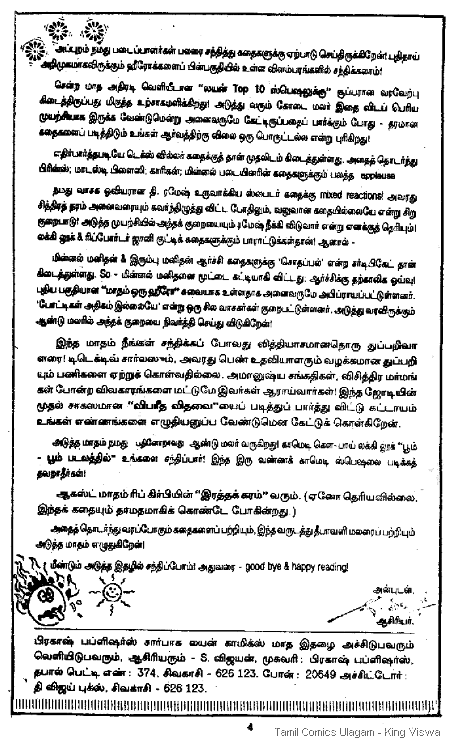 அப்புறம் நமது படைப்பாளர்கள் பலரை சந்தித்து கதைகளுக்கு ஏற்பாடு செய்திருக்கிறேன்! புதிதாய்
அறிமுகமாகவிருக்கும் ஹீரோக்களைப் பின்பகுதியில் உள்ள விளம்பரங்களில் சந்திக்கலாம்!
சென்ற மாத அதிரடி வெளியீடான "லயன் Top 10 ஸ்பெஷலுக்கு" சூப்பரான வரவேற்பு
கிடைத்திருப்பது மிகுந்த உற்சாகமளிக்கிறது! அடுத்து வரும் கோடை மலர் இதை விடப் பெரிய
முயற்சியாக இருக்க வேண்டுமென்று அனைவருமே கேட்டிருப்பதைப் பார்க்கும் போது - தரமான
கதைகளைப் படித்திடும் உங்கள் ஆர்வத்திற்கு விலை ஒரு பொருட்டல்ல என்று புரிகிறது!
எதிர்பார்த்தபடியே டெக்ஸ் வில்லர் கதைக்குத் தான் முதலிடம் கிடைத்துள்ளது. அதைத் தொடர்ந்து
பிரின்ஸ்; மாடஸ்டி பிளைஸி; காரிகன்; மின்னல் படையினரின் கதைகளுக்கும் பலத்த applause
நமது வாசக ஓவியரான தி. ரமேஷ் உருவாக்கிய ஸ்பைடர் கதைக்கு mixed reactions! அவரது
சித்திரத் தரம் அனைவரையும் கவர்ந்திழுத்து விட்ட போதிலும், வலுவான கதையில்லையே என்று சிறு
குறைபாடு! அடுத்த முயற்சியில் அந்தக் குறையையும் ரமேஷ் நீக்கி விடுவார் என்று எனக்குத் தெரியும்!
லக்கி லூக் & ரிப்போர்டர் ஜானி குட்டிக் கதைகளுக்கும் பாராட்டுக்கள்தான்! ஆனால் -
மின்னல் மனிதன் & இரும்பு மனிதன் ஆர்ச்சி கதைகளுக்கு 'சொதப்பல்' என்ற சர்டிபிகேட் தான்
கிடைத்துள்ளது. So - மின்னல் மனிதனை மூட்டை கட்டியாகி விட்டது. ஆர்ச்சிக்கு தற்காலிக ஓய்வு!
புதிய பகுதியான "மாதம் ஒரு ஹீரோ" சுவையாக உள்ளதாக அனைவருமே அபிப்ராயப்பட்டுள்ளனர்.
'போட்டிகள் அதிகம் இல்லையே' என்று ஒரு சில வாசகர்கள் குறைபட்டுள்ளனர். அடுத்து வரவிருக்கும்
ஆண்டு மலரில் அந்தக் குறையை நிவர்த்தி செய்து விடுகிறேன்!
இந்த மாதம் நீங்கள் சந்திக்கப் போவது வித்தியாசமானதொரு துப்பறிவா
ளரை! டிடெக்டிவ் சார்லஸும், அவரது பெண் உதவியாளரும் வழக்கமான துப்பறி
யும் பணிகளை ஏற்றுக் கொள்வதில்லை. அமானுஷ்ய சங்கதிகள், விசித்திர மர்மங்
கள் போன்ற விவகாரங்களை மட்டுமே இவர்கள் ஆராய்வார்கள்! இந்த ஜோடியின்
முதல் சாகஸமான "விபரீத விதவை"யைப் படித்துப் பார்த்து விட்டு கட்டாயம்
உங்கள் எண்ணங்களை எழுதியனுப்ப வேண்டுமென கேட்டுக் கொள்கிறேன்.
அடுத்த மாதம் நமது பதினோறாவது ஆண்டு மலர் வருகிறது! காமெடி கௌ-பாய் லக்கி லூக் "பூம்
- பூம் படலத்தில்" உங்களை சந்திப்பார்! இந்த இரு வண்ணக் காமெடி ஸ்பெஷலை படிக்கத்
தவறாதீர்கள்!
ஆகஸ்ட் மாதம் ரிப் கிர்பியின் "இரத்தக் கரம்" வரும். (ஏனோ தெரியவில்லை,
இந்தக் கதையும் தாமதமாகிக் கொண்டே போகின்றது.)
அதைத் தொடர்ந்து வரப்போகும் கதைகளைப் பற்றியும், இந்த வருடத்து தீபாவளி மலரைப் பற்றியும்
அடுத்த மாதம் எழுதுகிறேன்!
மீண்டும் அடுத்த இதழில் சந்திப்போம்! அதுவரை - good bye & happy reading!
அன்புடன்,
ஆசிரியர்.
பிரகாஷ் பப்ளிஷர்ஸ் சார்பாக லயன் காமிக்ஸ் மாத இதழை அச்சிடுபவரும்
வெளியிடுபவரும், ஆசிரியரும் - S. விஜயன், முகவரி : பிரகாஷ் பப்ளிஷர்ஸ்,
தபால் பெட்டி எண் : 374, சிவகாசி - 626 123. போன் : 20649 அச்சிட்டோர் :
தி விஜய் புக்ஸ், சிவகாசி - 626 123.
4
Tamil Comics Ulagam - King Viswa